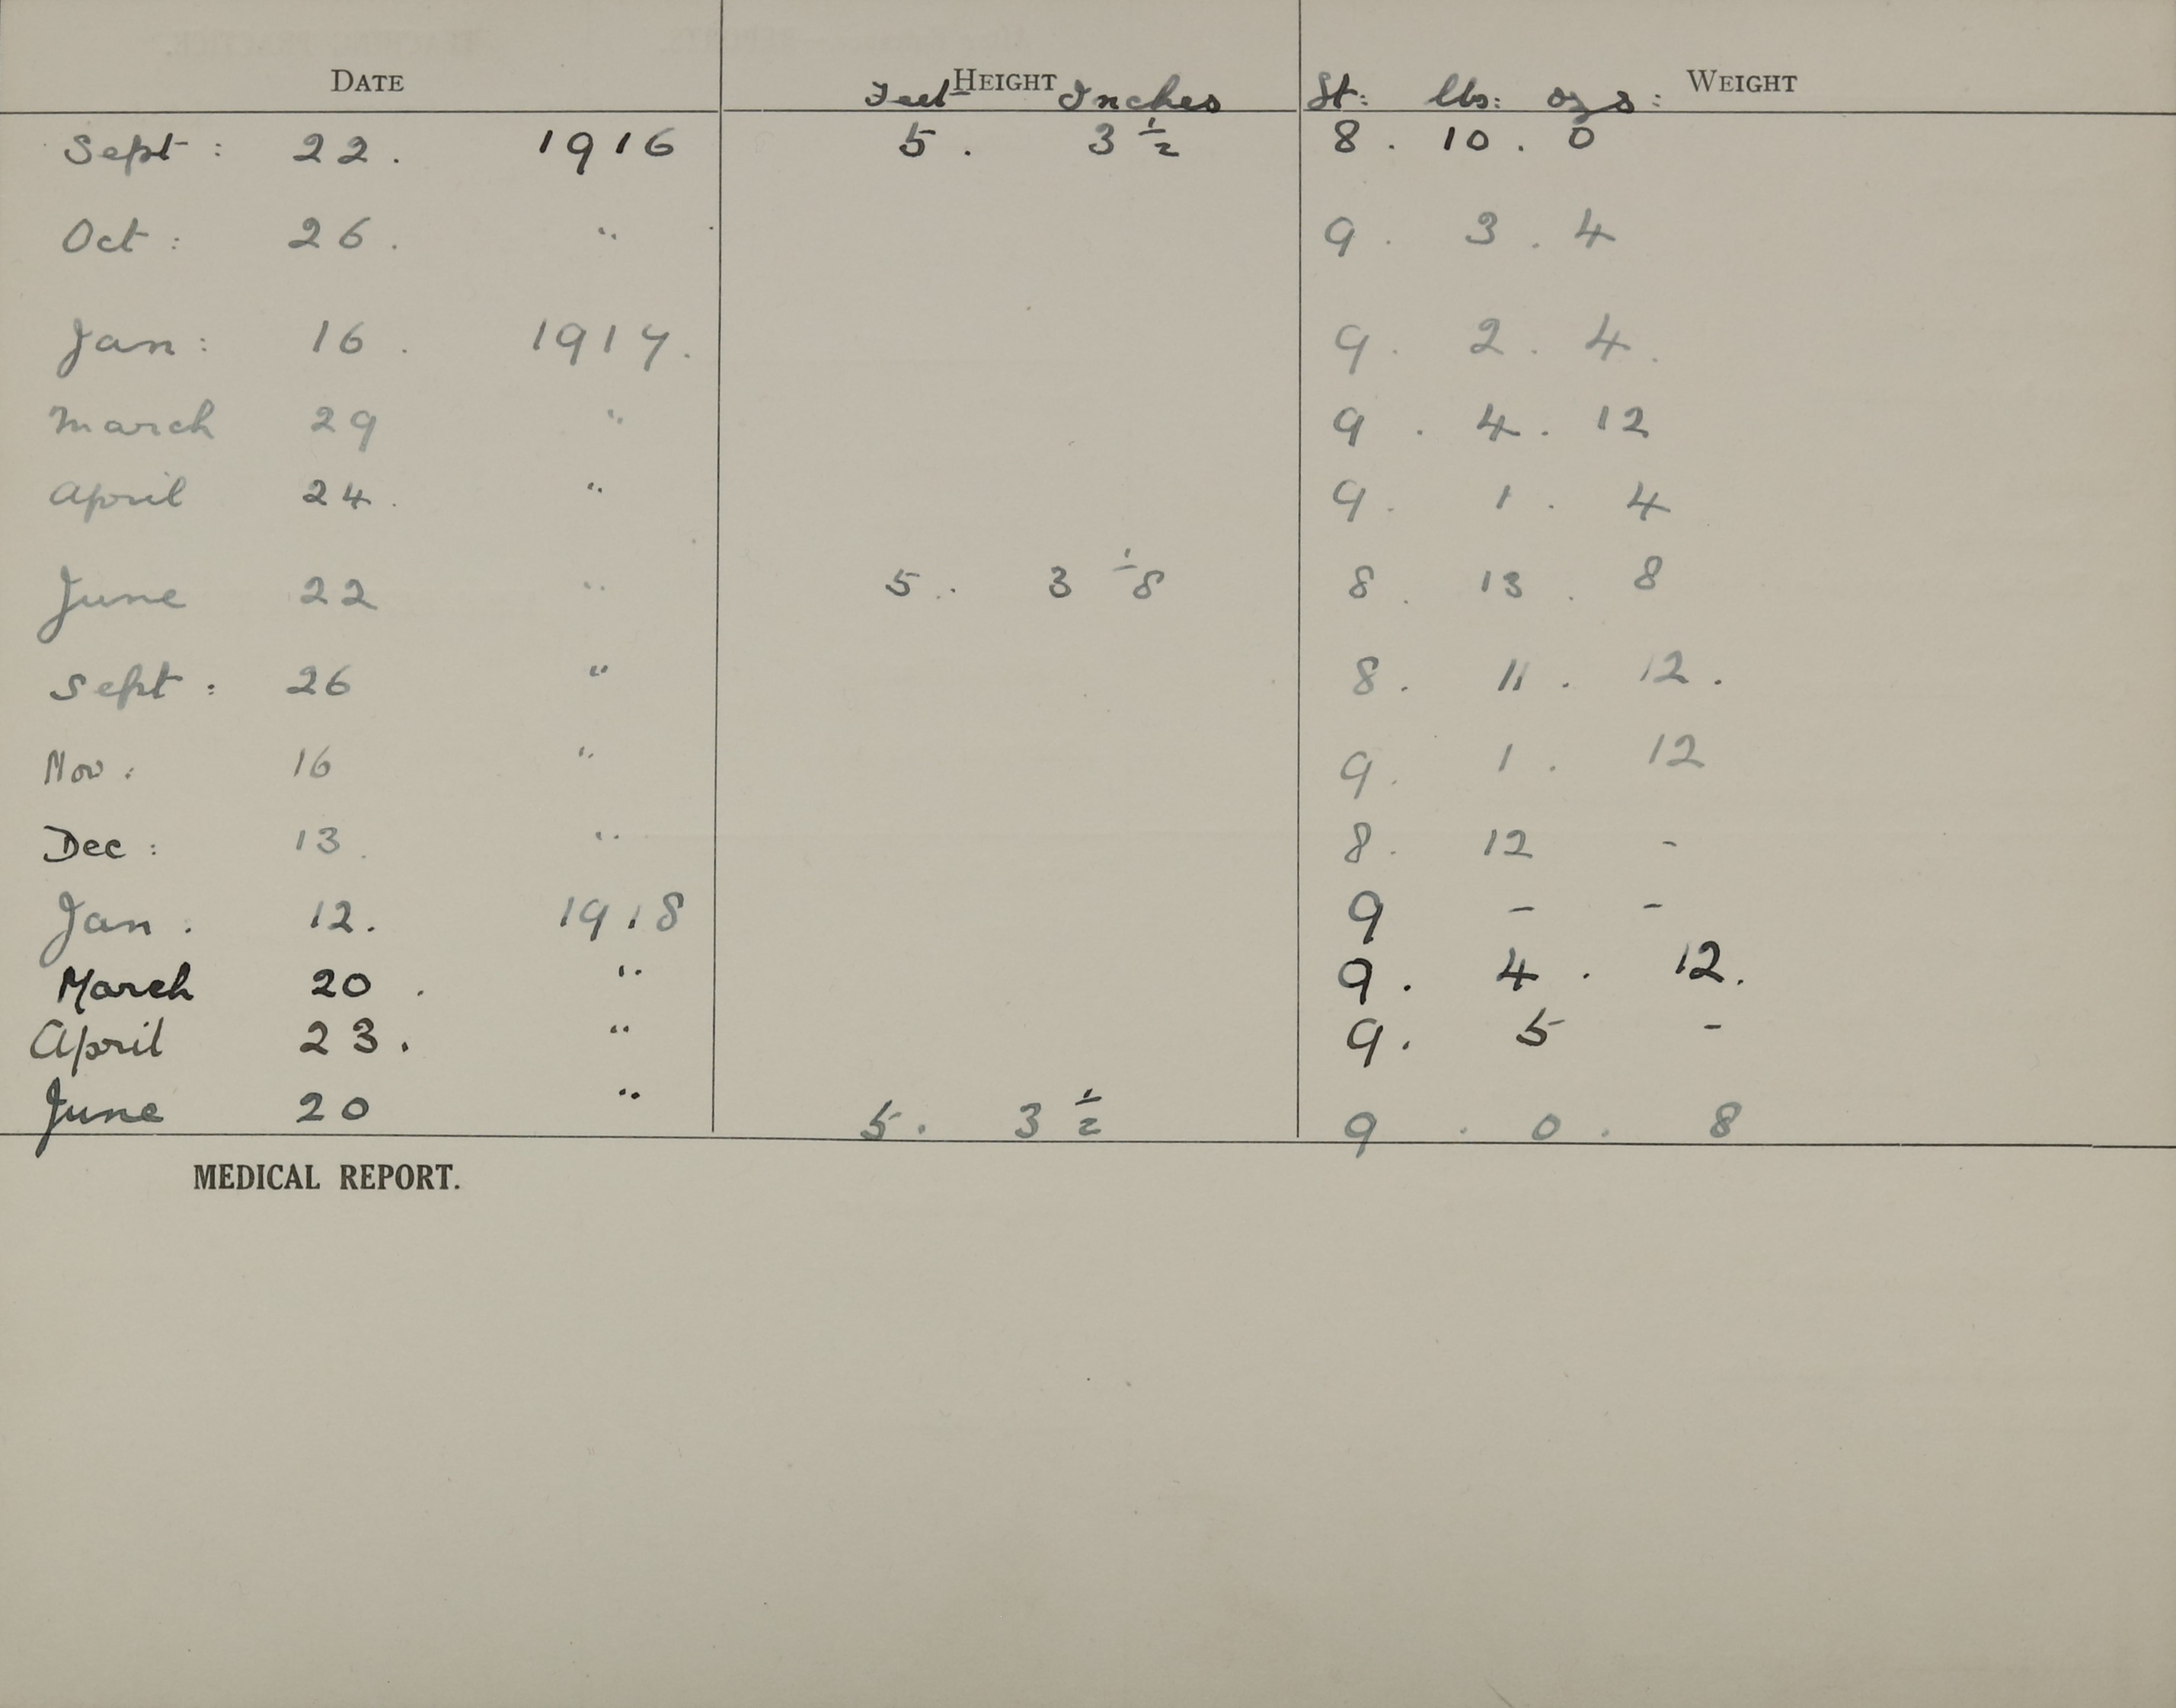 DATE HEIGHT WEIGHT
Feet Inches St: lbs: ozs:
Sept: 22. 1916 5. 3 1/2 8. 10. 0
Oct: 26. " 9. 3. 4
Jan: 16. 1917. 9. 2. 4.
March 29 " 9. 4. 12
April 24. " 9. 1. 4
June 22 " 5. 3 1/8 8. 13. 8
Sept: 26 " 8. 11. 12.
Nov: 16 " 9. 1. 12
Dec: 13. " 8. 12 -
Jan. 12. 1918 9 - -
March 20. " 9. 4. 12.
April 23. " 9. 5 -
June 20 " 5. 3 1/2 9. 0. 8
MEDICAL REPORT.